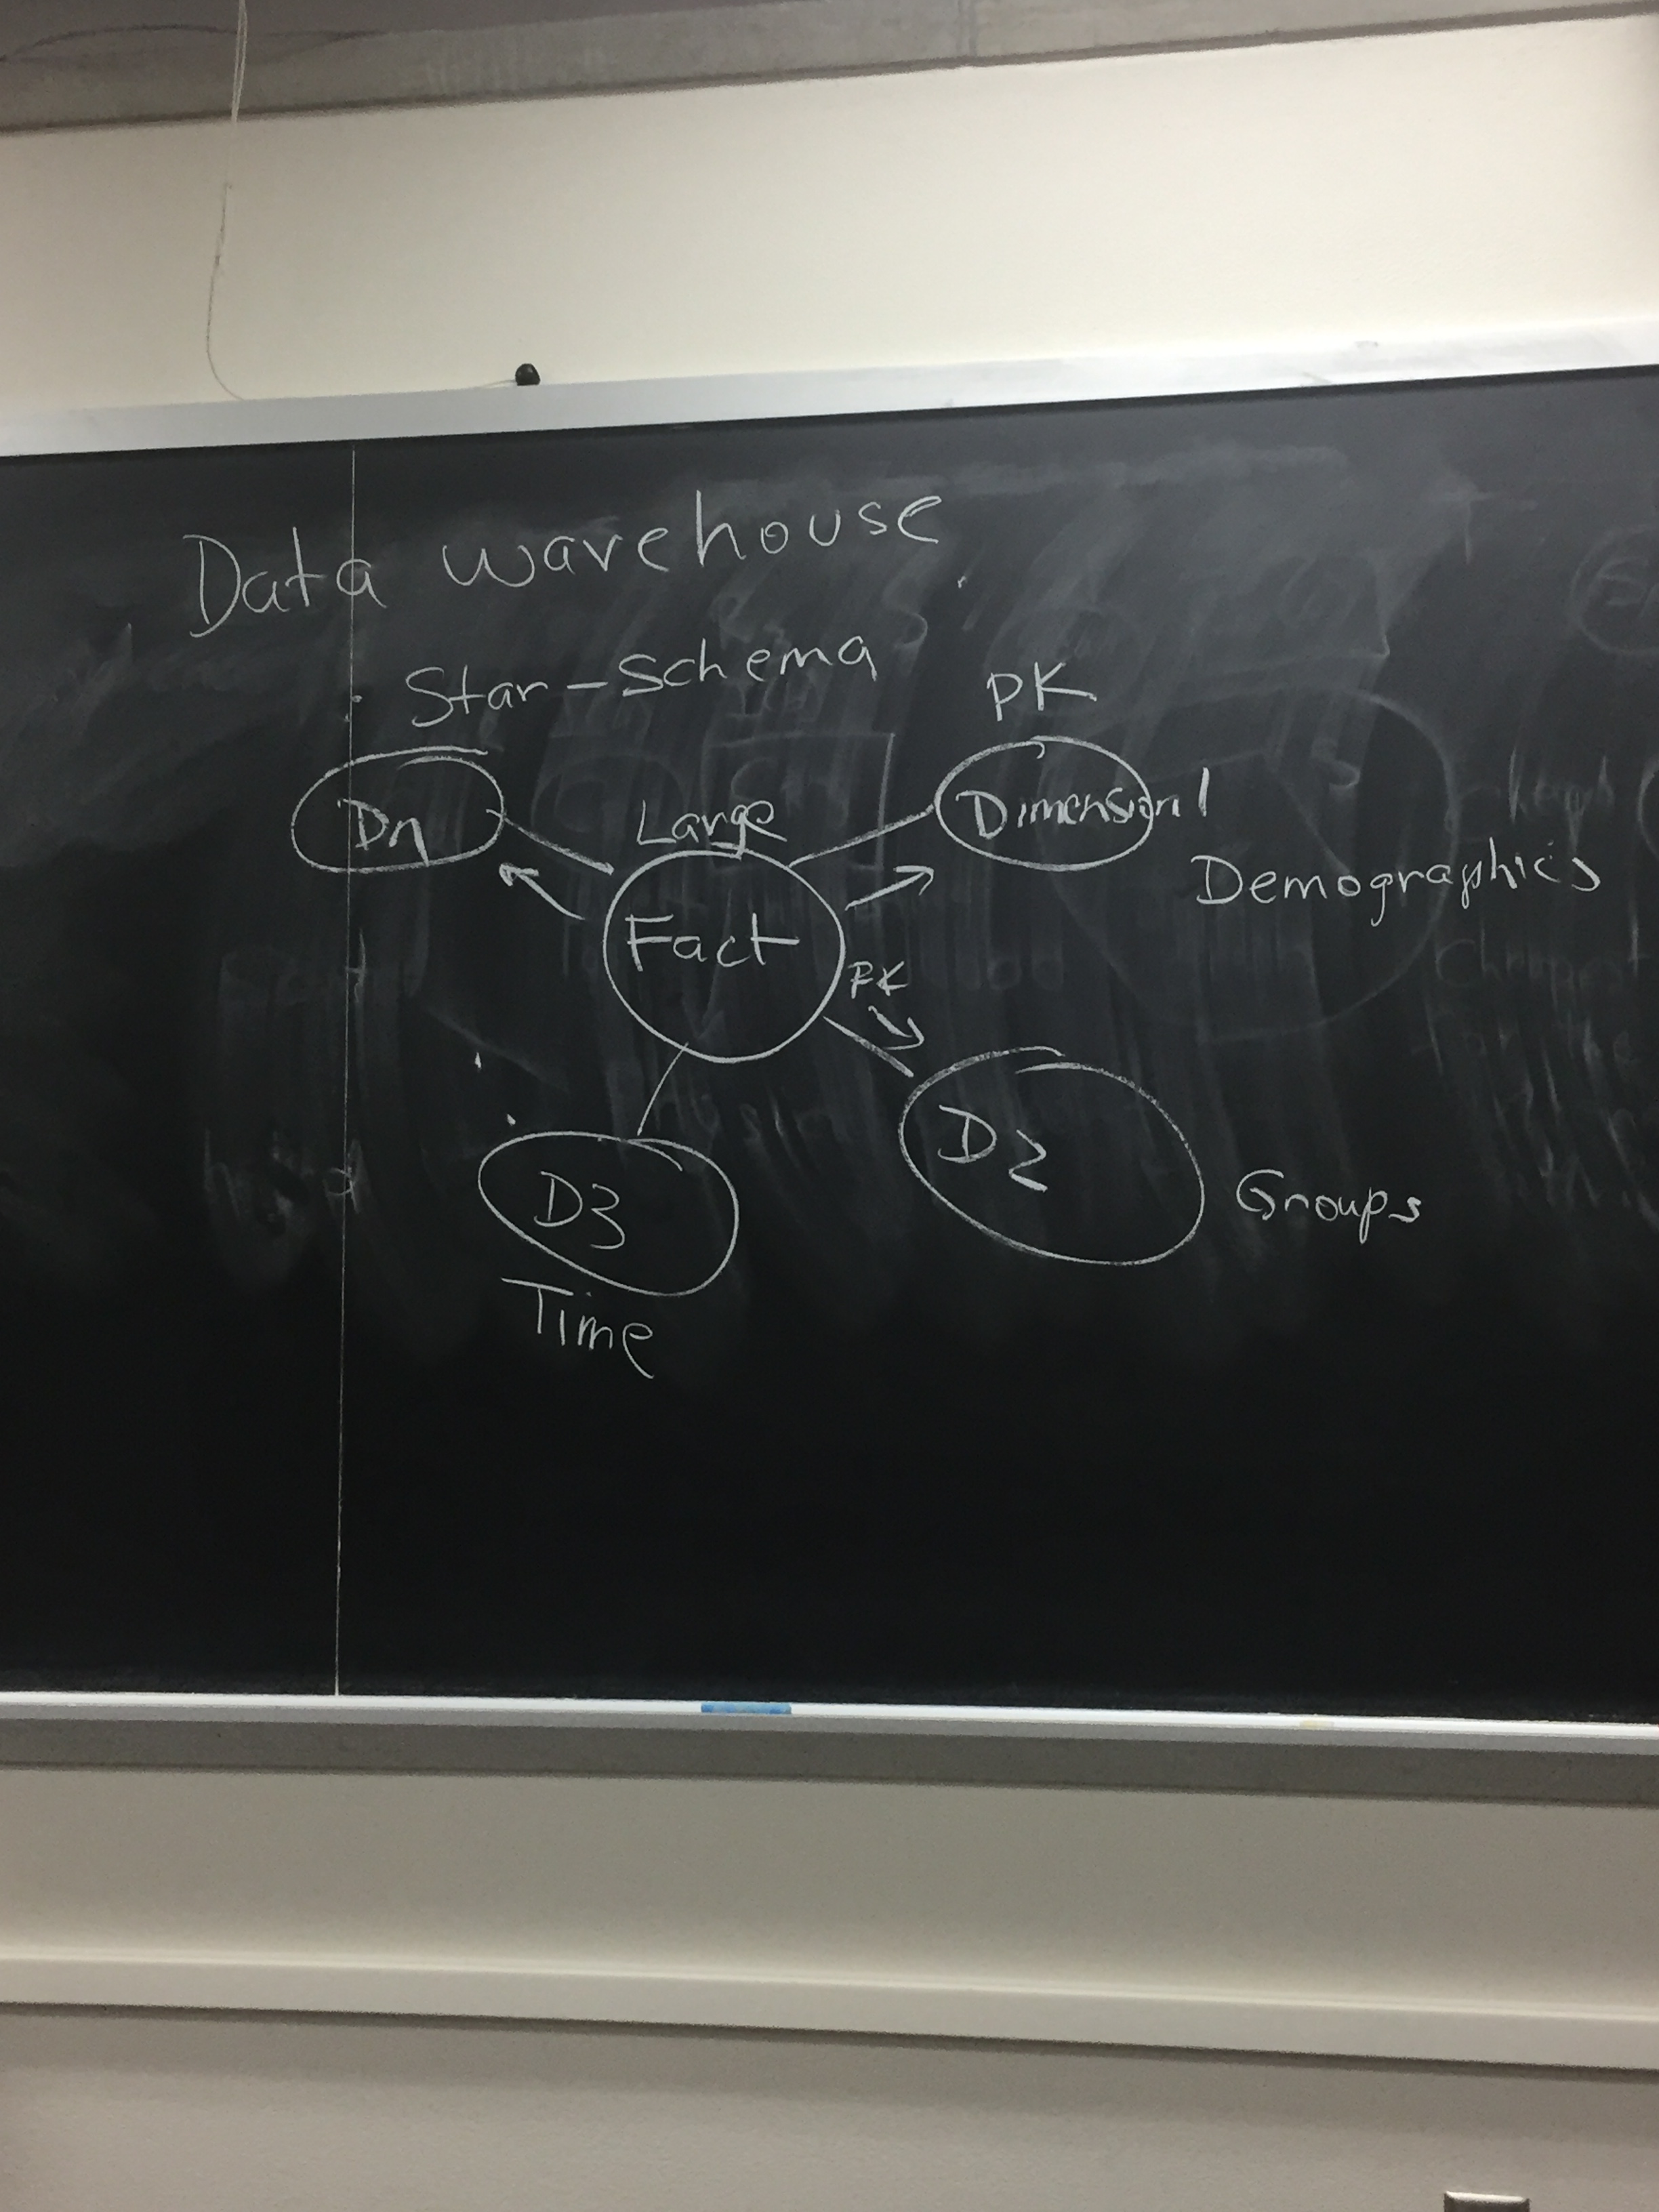 Data warehouse
Star-Schema
PK
Dn
Large
Dimension 1
Demographics
Fact
FK
D2
D3
Groups
Time